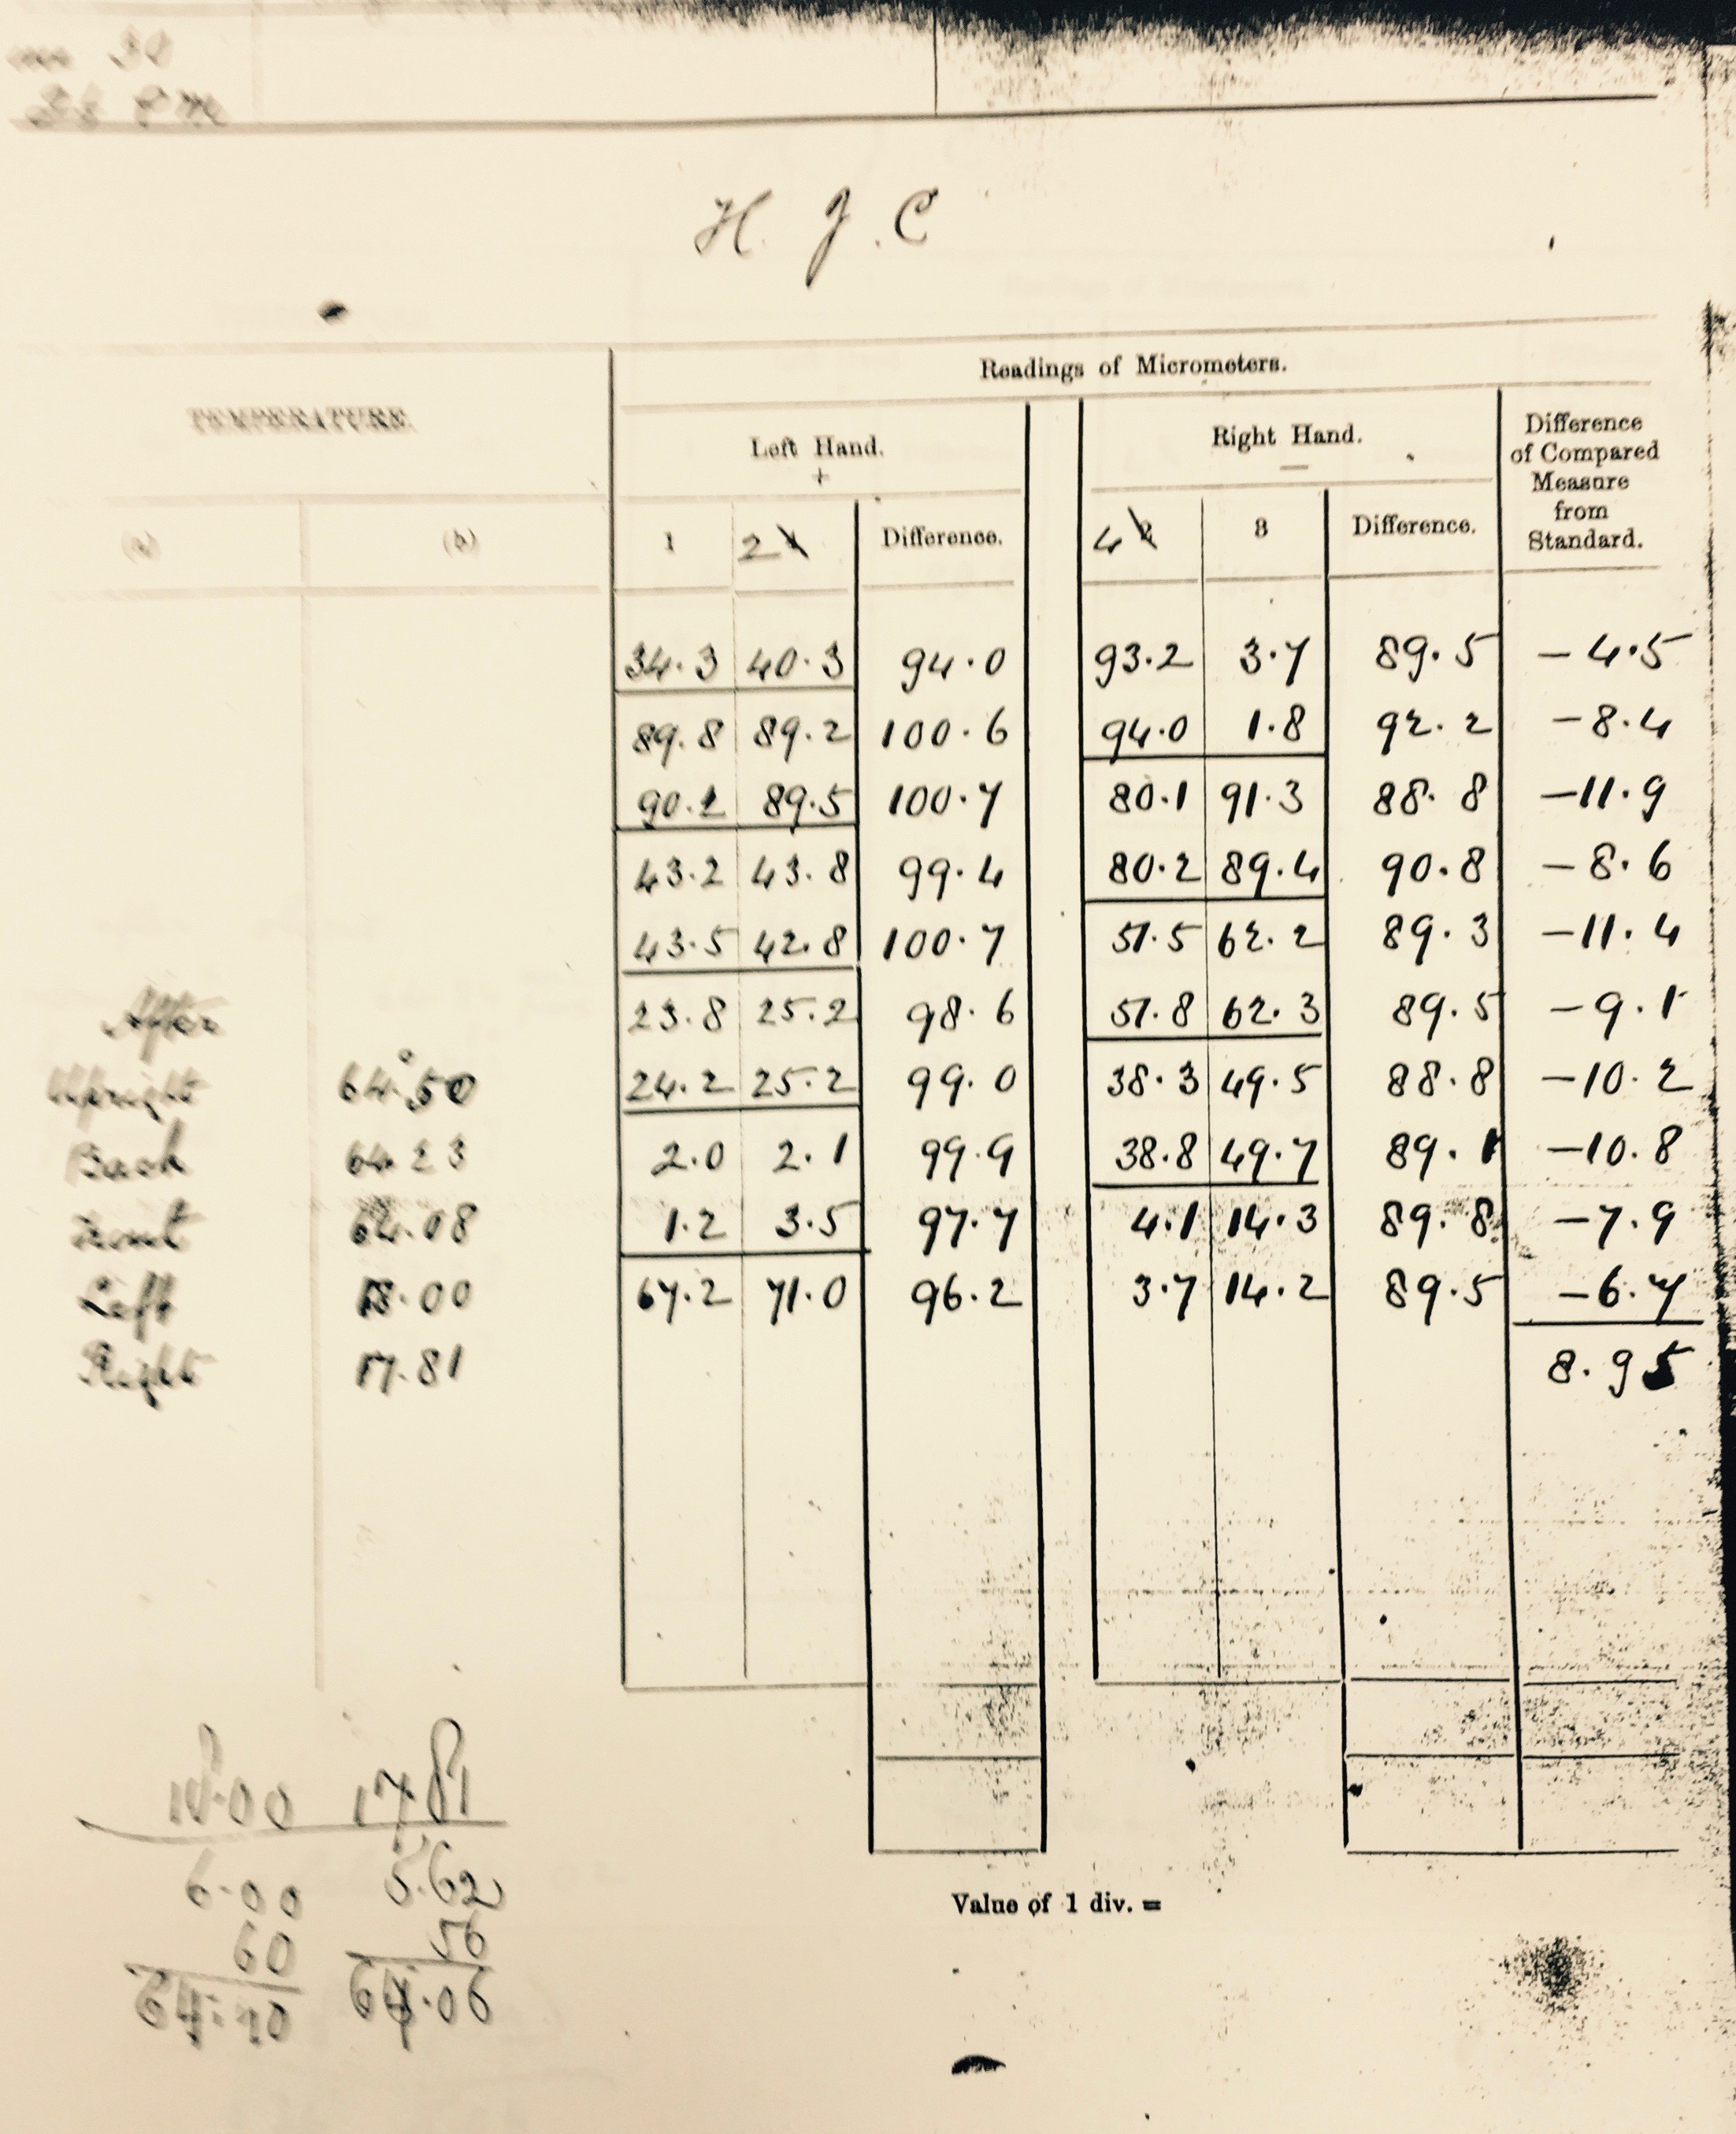 30
H. J. C
Readings of Micrometers.
TEMPERATURE.
Left Hand.
+
Right Hand.
—
Difference of Compared Measure from Standard.
(a) (b) 1 2 Difference. 4 3 Difference.
34.3 40.3 94.0 93.2 3.7 89.5 −4.5
89.8 89.2 100.6 94.0 1.8 92.2 −8.4
90.2 89.5 100.7 80.1 91.3 88.8 −11.9
43.2 43.8 99.4 80.2 89.4 90.8 −8.6
43.5 42.8 100.7 51.5 62.2 89.3 −11.4
After 23.8 25.2 98.6 51.8 62.3 89.5 −9.1
Upright 64.50 24.2 25.2 99.0 38.3 49.5 88.8 −10.2
Back 64.23 2.0 2.1 99.9 38.8 49.7 89.1 −10.8
Front 64.08 1.2 3.5 97.7 4.1 14.3 89.8 −7.9
Left 18.00 67.2 71.0 96.2 3.7 14.2 89.5 −6.7
Right 17.81 8.95
18.00 17.81
6.00 5.62
60 56
64.40 64.06
Value of 1 div. =